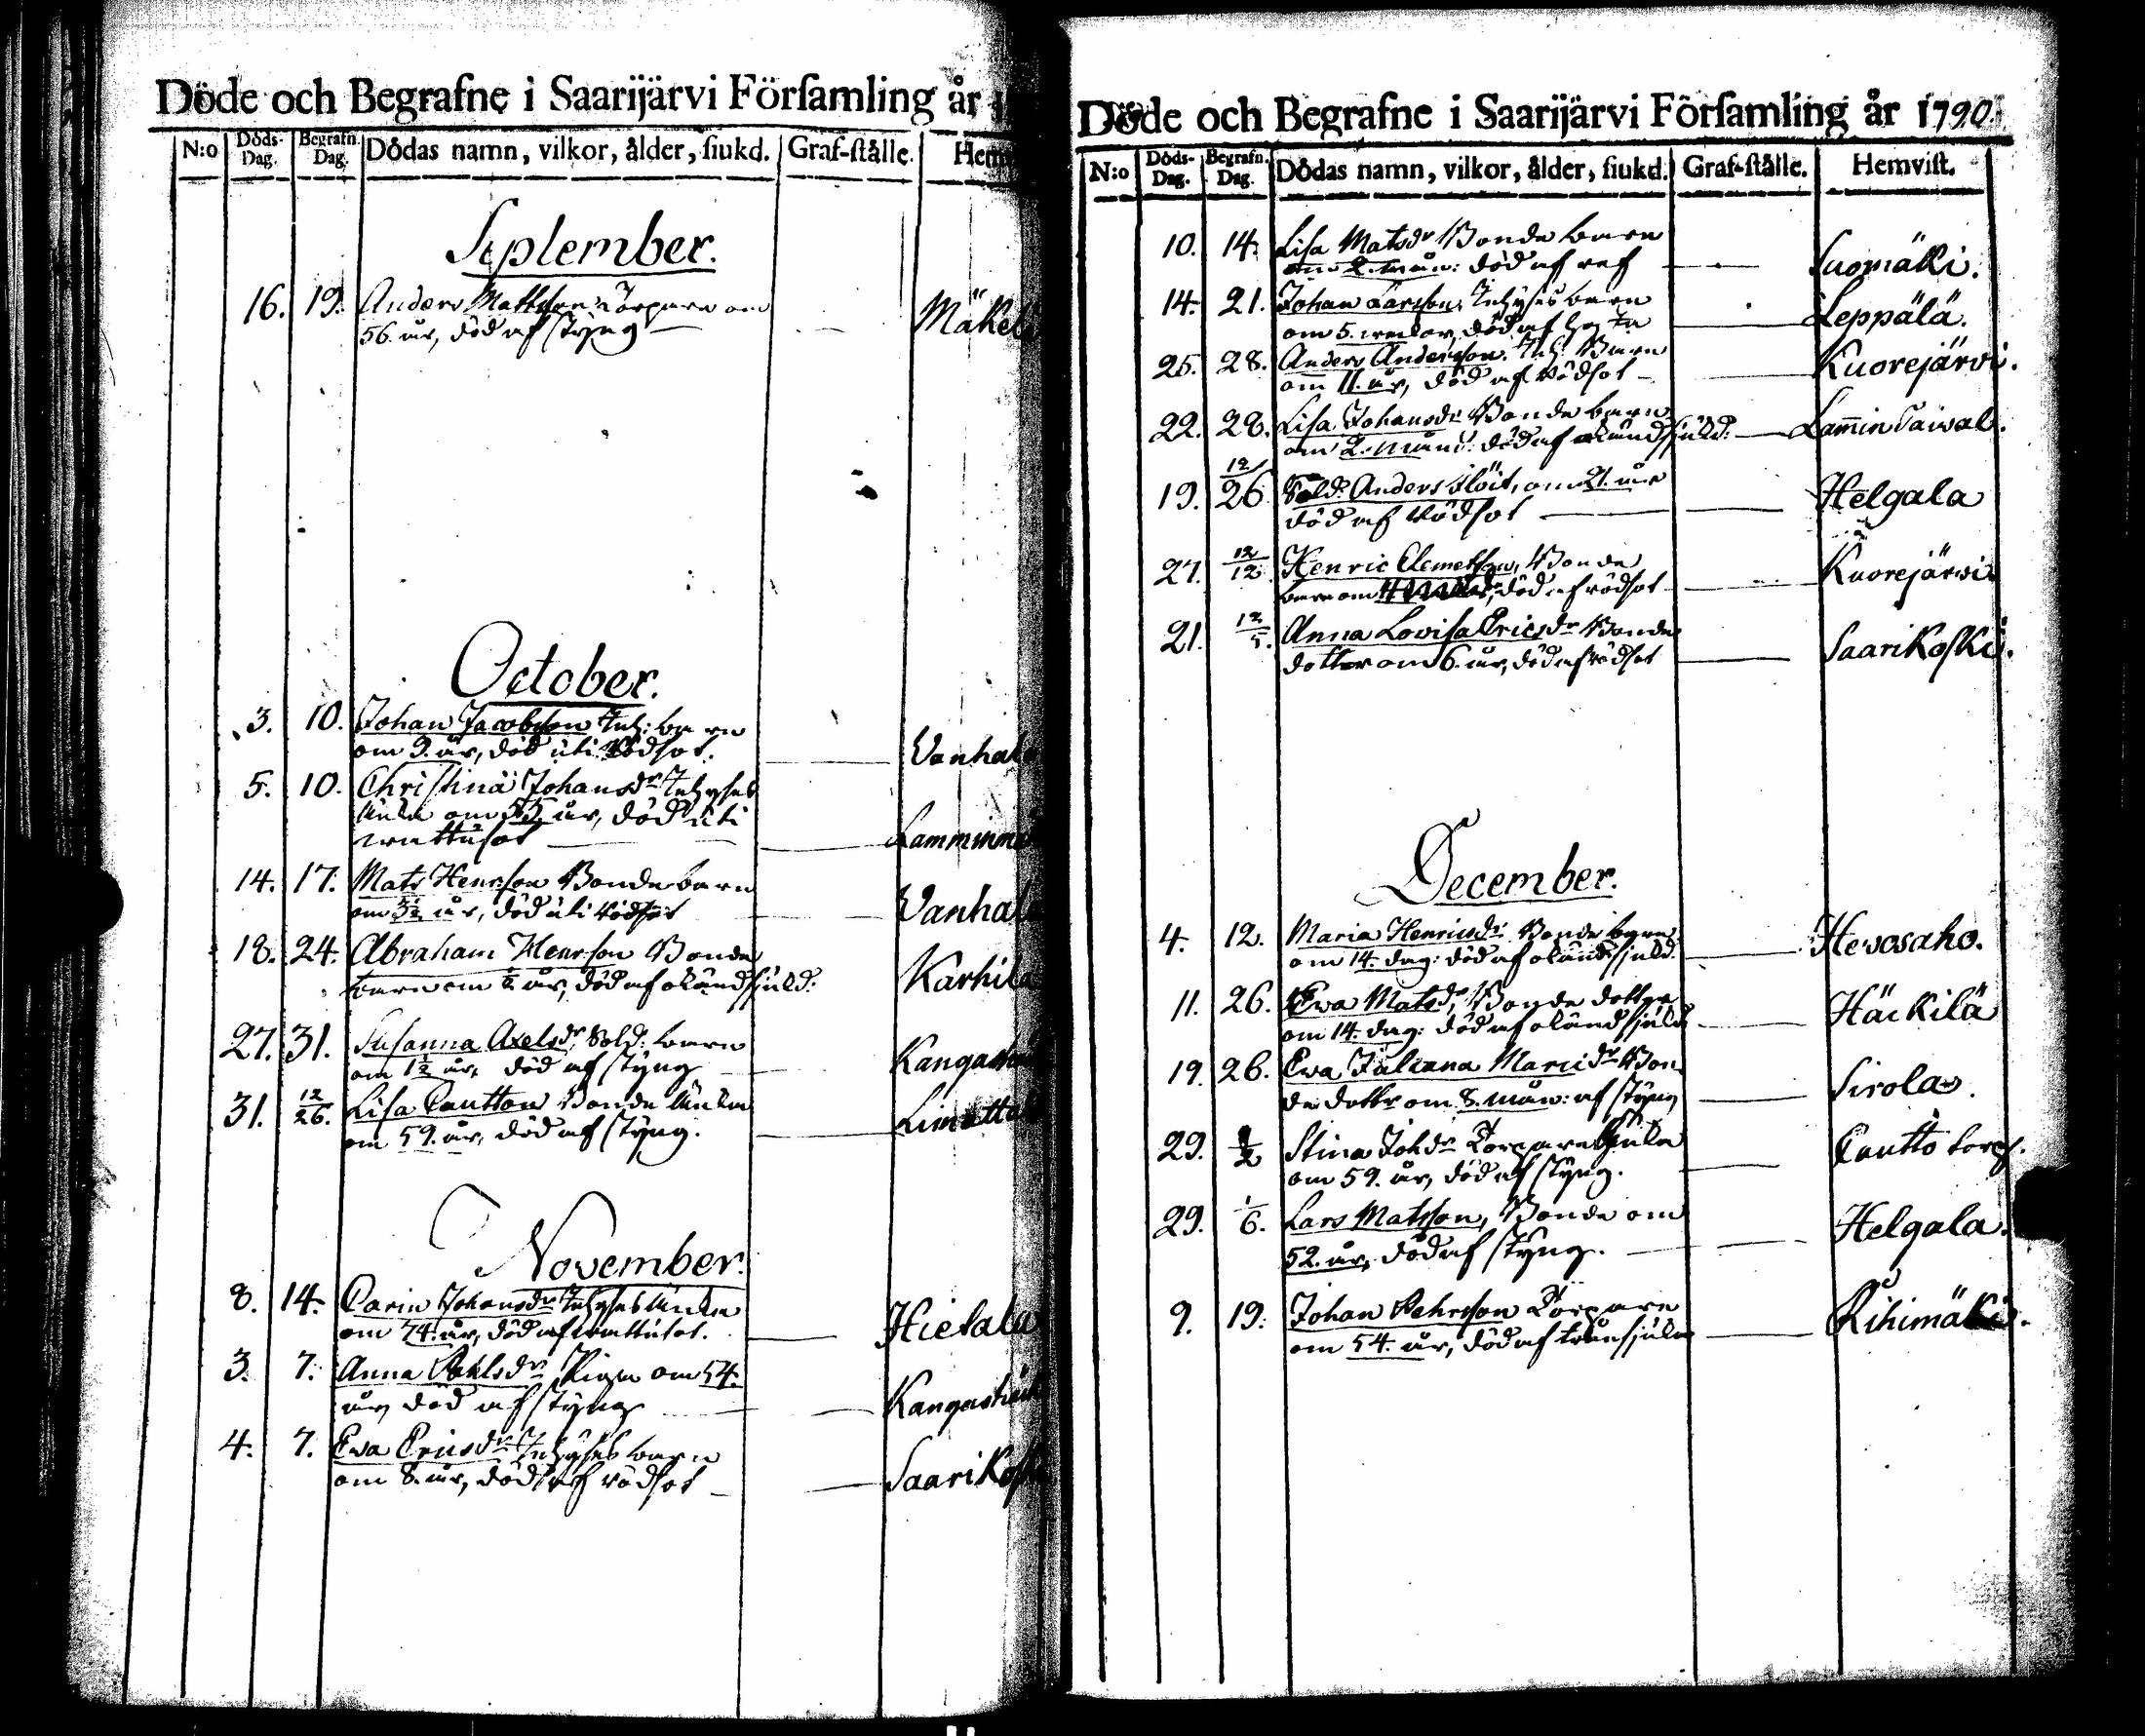 Döde och Begrafne i Saarijärvi Förſamling år
N:o Döds-Dag. Begrafn. Dag. Dödas namn, vilkor, ålder, ſiukd. Graf-ſtälle. Hem
September.
16. 19. Anders Mattsson Torpare om Mäkel
56. år, död af styng
October.
3. 10. Johan Jacobsson Inh: barn
om 9. år, död uti Rödsot. Vanhal
5. 10. Christina Johansdr Inhyses
änka om 55 år, död uti
wattusot Lammin
14. 17. Mats Henrsson Bonde barn
om år, död uti Rödsot Vanhal
18. 24. Abraham Henrsson Bonde
barn om ½ år, död af okänd sjukd: Karhila
27. 31. Susanna Axelsdr Sold: barn
om 1½ år, död af styng Kangas
31. 12/26. Lisa Pautton Bonde änka
om 59. år, död af styng. Limatta
November.
8. 14. Carin Johansdr Inhyses änka
om 74. år, död af wattusot. Hietala
3. 7. Anna Pahlsdr Piga om 54.
år, död af styng Kangas
4. 7. Ewa Ericsdr Inhyses barn
om 8. år, död af rödsot Saarikos
Döde och Begrafne i Saarijärvi Förſamling år 1790.
N:o Döds-Dag. Begrafn. Dag. Dödas namn, vilkor, ålder, ſiukd. Graf-ſtälle. Hemviſt.
10. 14. Lisa Matsdr Bonde barn
om 2. mån: död af Suomäki.
14. 21. Johan Larsson, Inhyses barn
om 5. weckor, död af hosta Leppälä.
25. 28. Anders Andersson. Inh: Barn
om 11. år, död af Rödsot Kuorejärvi.
22. 28. Lisa Johansdr Bonde barn
om 2. mån: död af okänd sjukd: Lamin Taival.
19. 12/26 Sold: Anders Flöit, om 21. år
död af Rödsot Helgala
27. 12/12 Henric Clemetsson, Bonde
barn om död af rödsot Kuorejärvi
21. 12/5. Anna Lovisa Ericsdr Bonde
dotter om 6. år, död af rödsot Saarikoski.
December.
4. 12. Maria Henricsdr Bonde barn
om 14. dag: död af okänd sjukd. Hevosaho.
11. 26. Ewa Matsdr, Bonde dotter
om 14. dag: död af okänd sjukd Häckilä
19. 26. Ewa Juliana Marcisdr Bon-
de dotter om 8. mån: af styng Sirola.
29. ½ Stina Johdr Torpare Enka
om 59. år, död af styng. Pautto torp.
29. 1/6. Lars Matsson, Bonde om
52. år, död af styng. Helgala.
9. 19. Johan Pehrsson Torpare
om 54. år, död af trånsjuka Rihimäki.